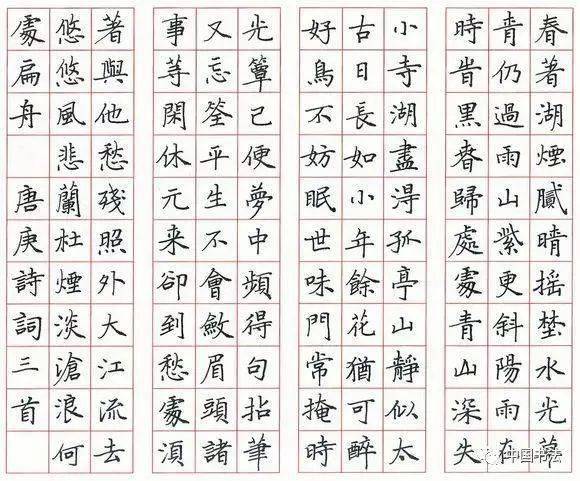 春著湖煙膩晴摇埜水光草
青仍過雨山紫更斜陽雨在
時旹黑春歸處處青山深失
小寺湖盡淂孤亭山靜似太
古日長如小年餘花猶可醉
好鳥不妨眠世味門常掩時
光簟已便夢中頻得句拈筆
又忘筌平生不會斂眉頭諸
事等閑休元来卻到愁處須
著與他愁殘照外大江流去
悠悠風悲蘭杜煙淡滄浪何
處扁舟 唐庚詩詞三首
中国书法